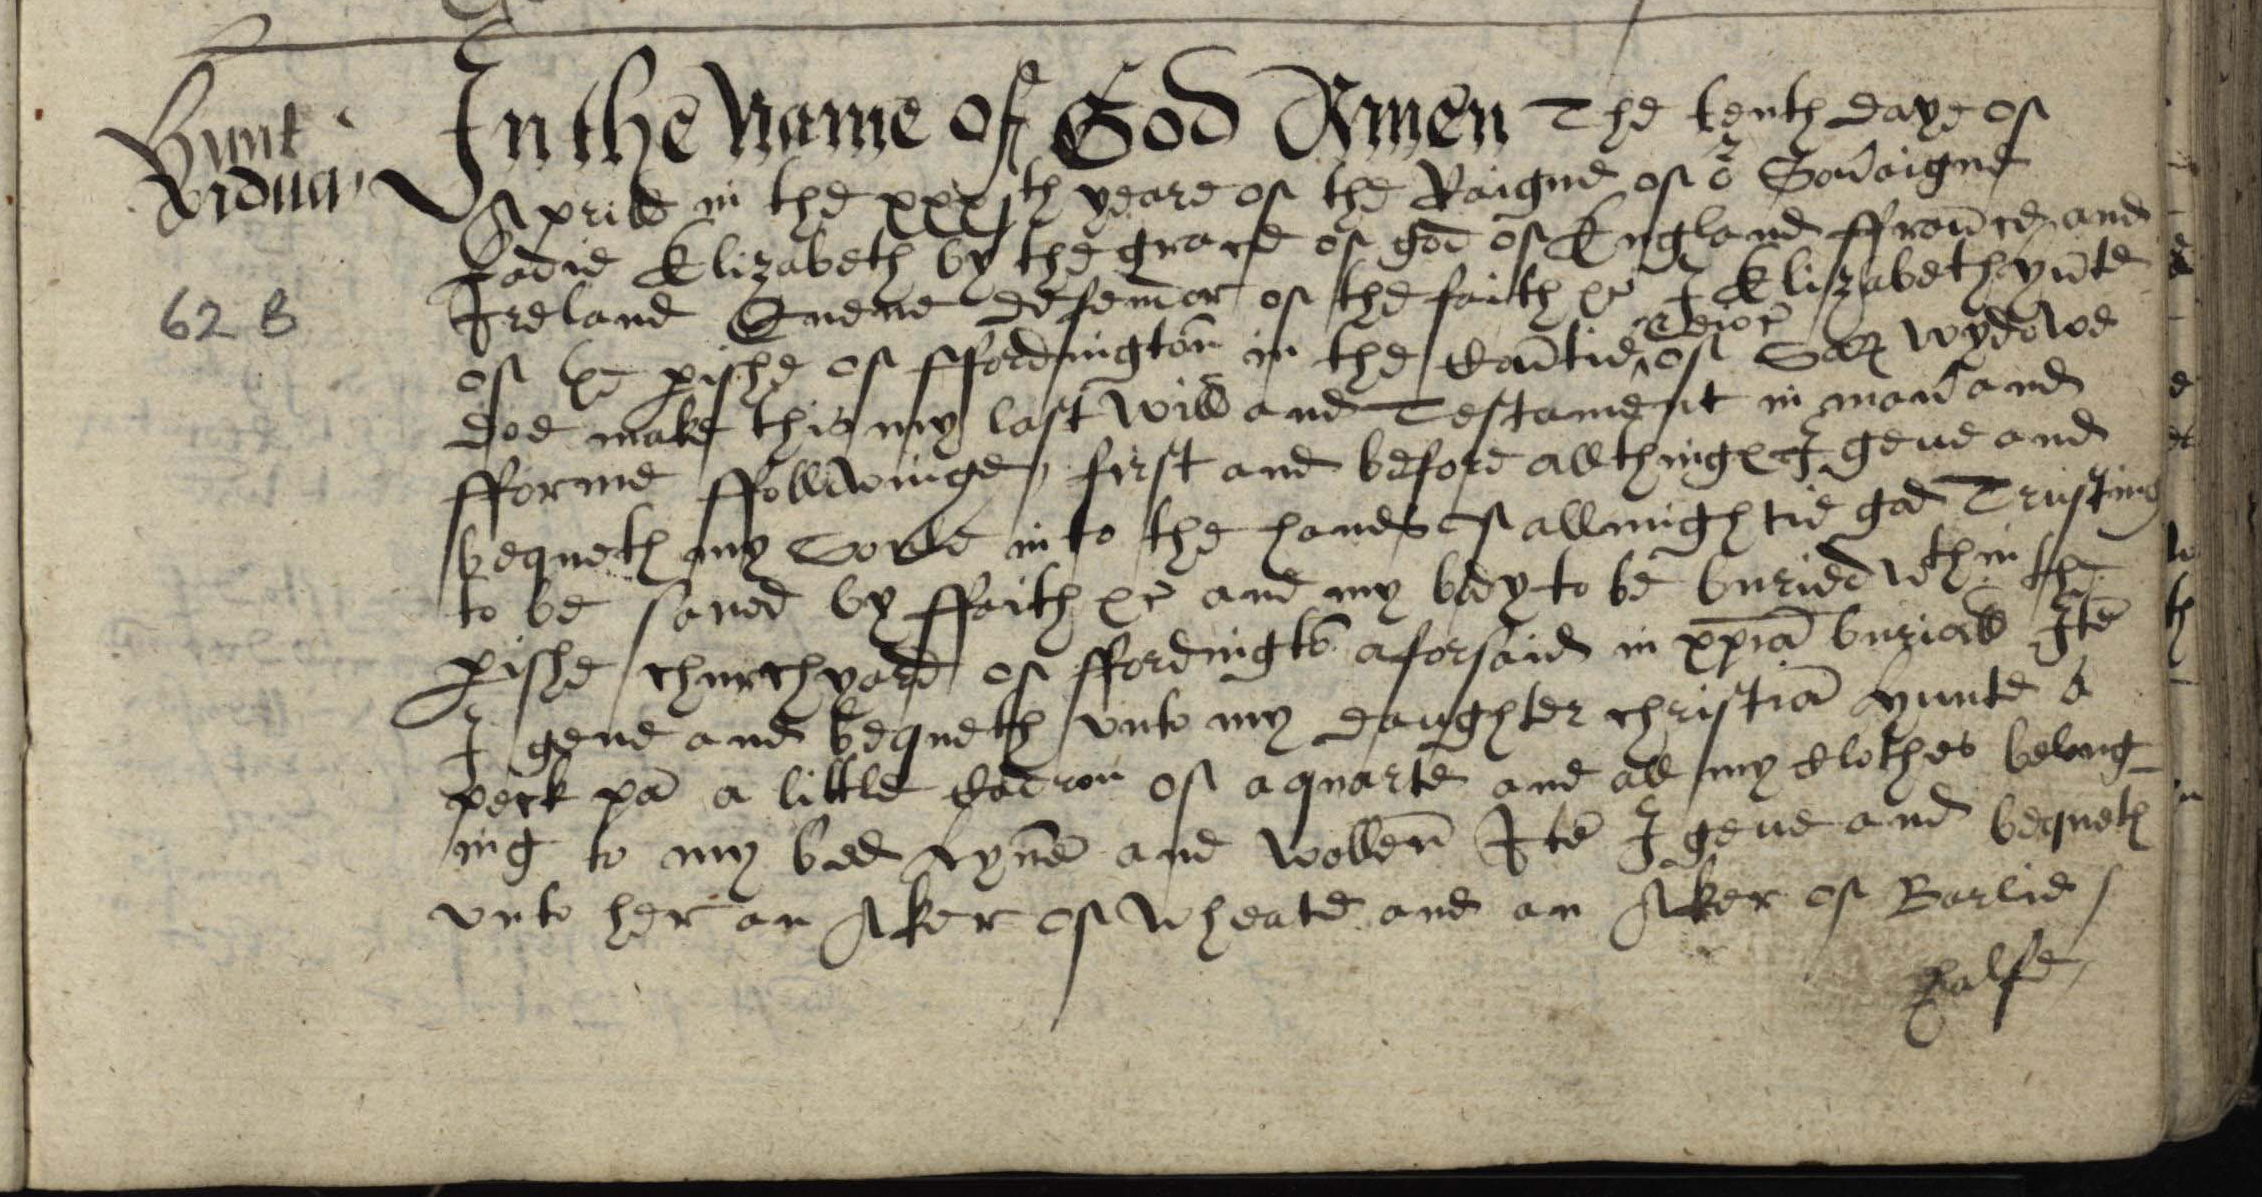 Hunt
vidua
62 B
In the Name of God Amen The tenth daye of
Aprill in the xxxjth yeare of the Raigne of or Sov̄aigne
Ladie Elizabeth by the grace of god of England ffraūce and
Ireland Quene defendor of the faith &c I Elizabeth Hūnte
of ye pishe of ffordingtōn in the Coūtie of Dors wydowe
doe make this my last Will and Testament in manr and
fforme ffollowinge, first and before all things I geue and
bequeth my Soule into the hands of allmightie god Trusting
to be saued by ffaith &c and my body to be buried wthin the
pishe churchyard of ffordingtō aforsaid in xpiā buriall Itē
I geue and bequeth vnto my daughter christiā Hunte a
peck pā a little Cadron of a quarte and all my Clothes belong
ing to my bed Lynē and wollen Itē I geue and bequeth
vnto her an Aker of Wheate and an Aker of Barlie
halfe